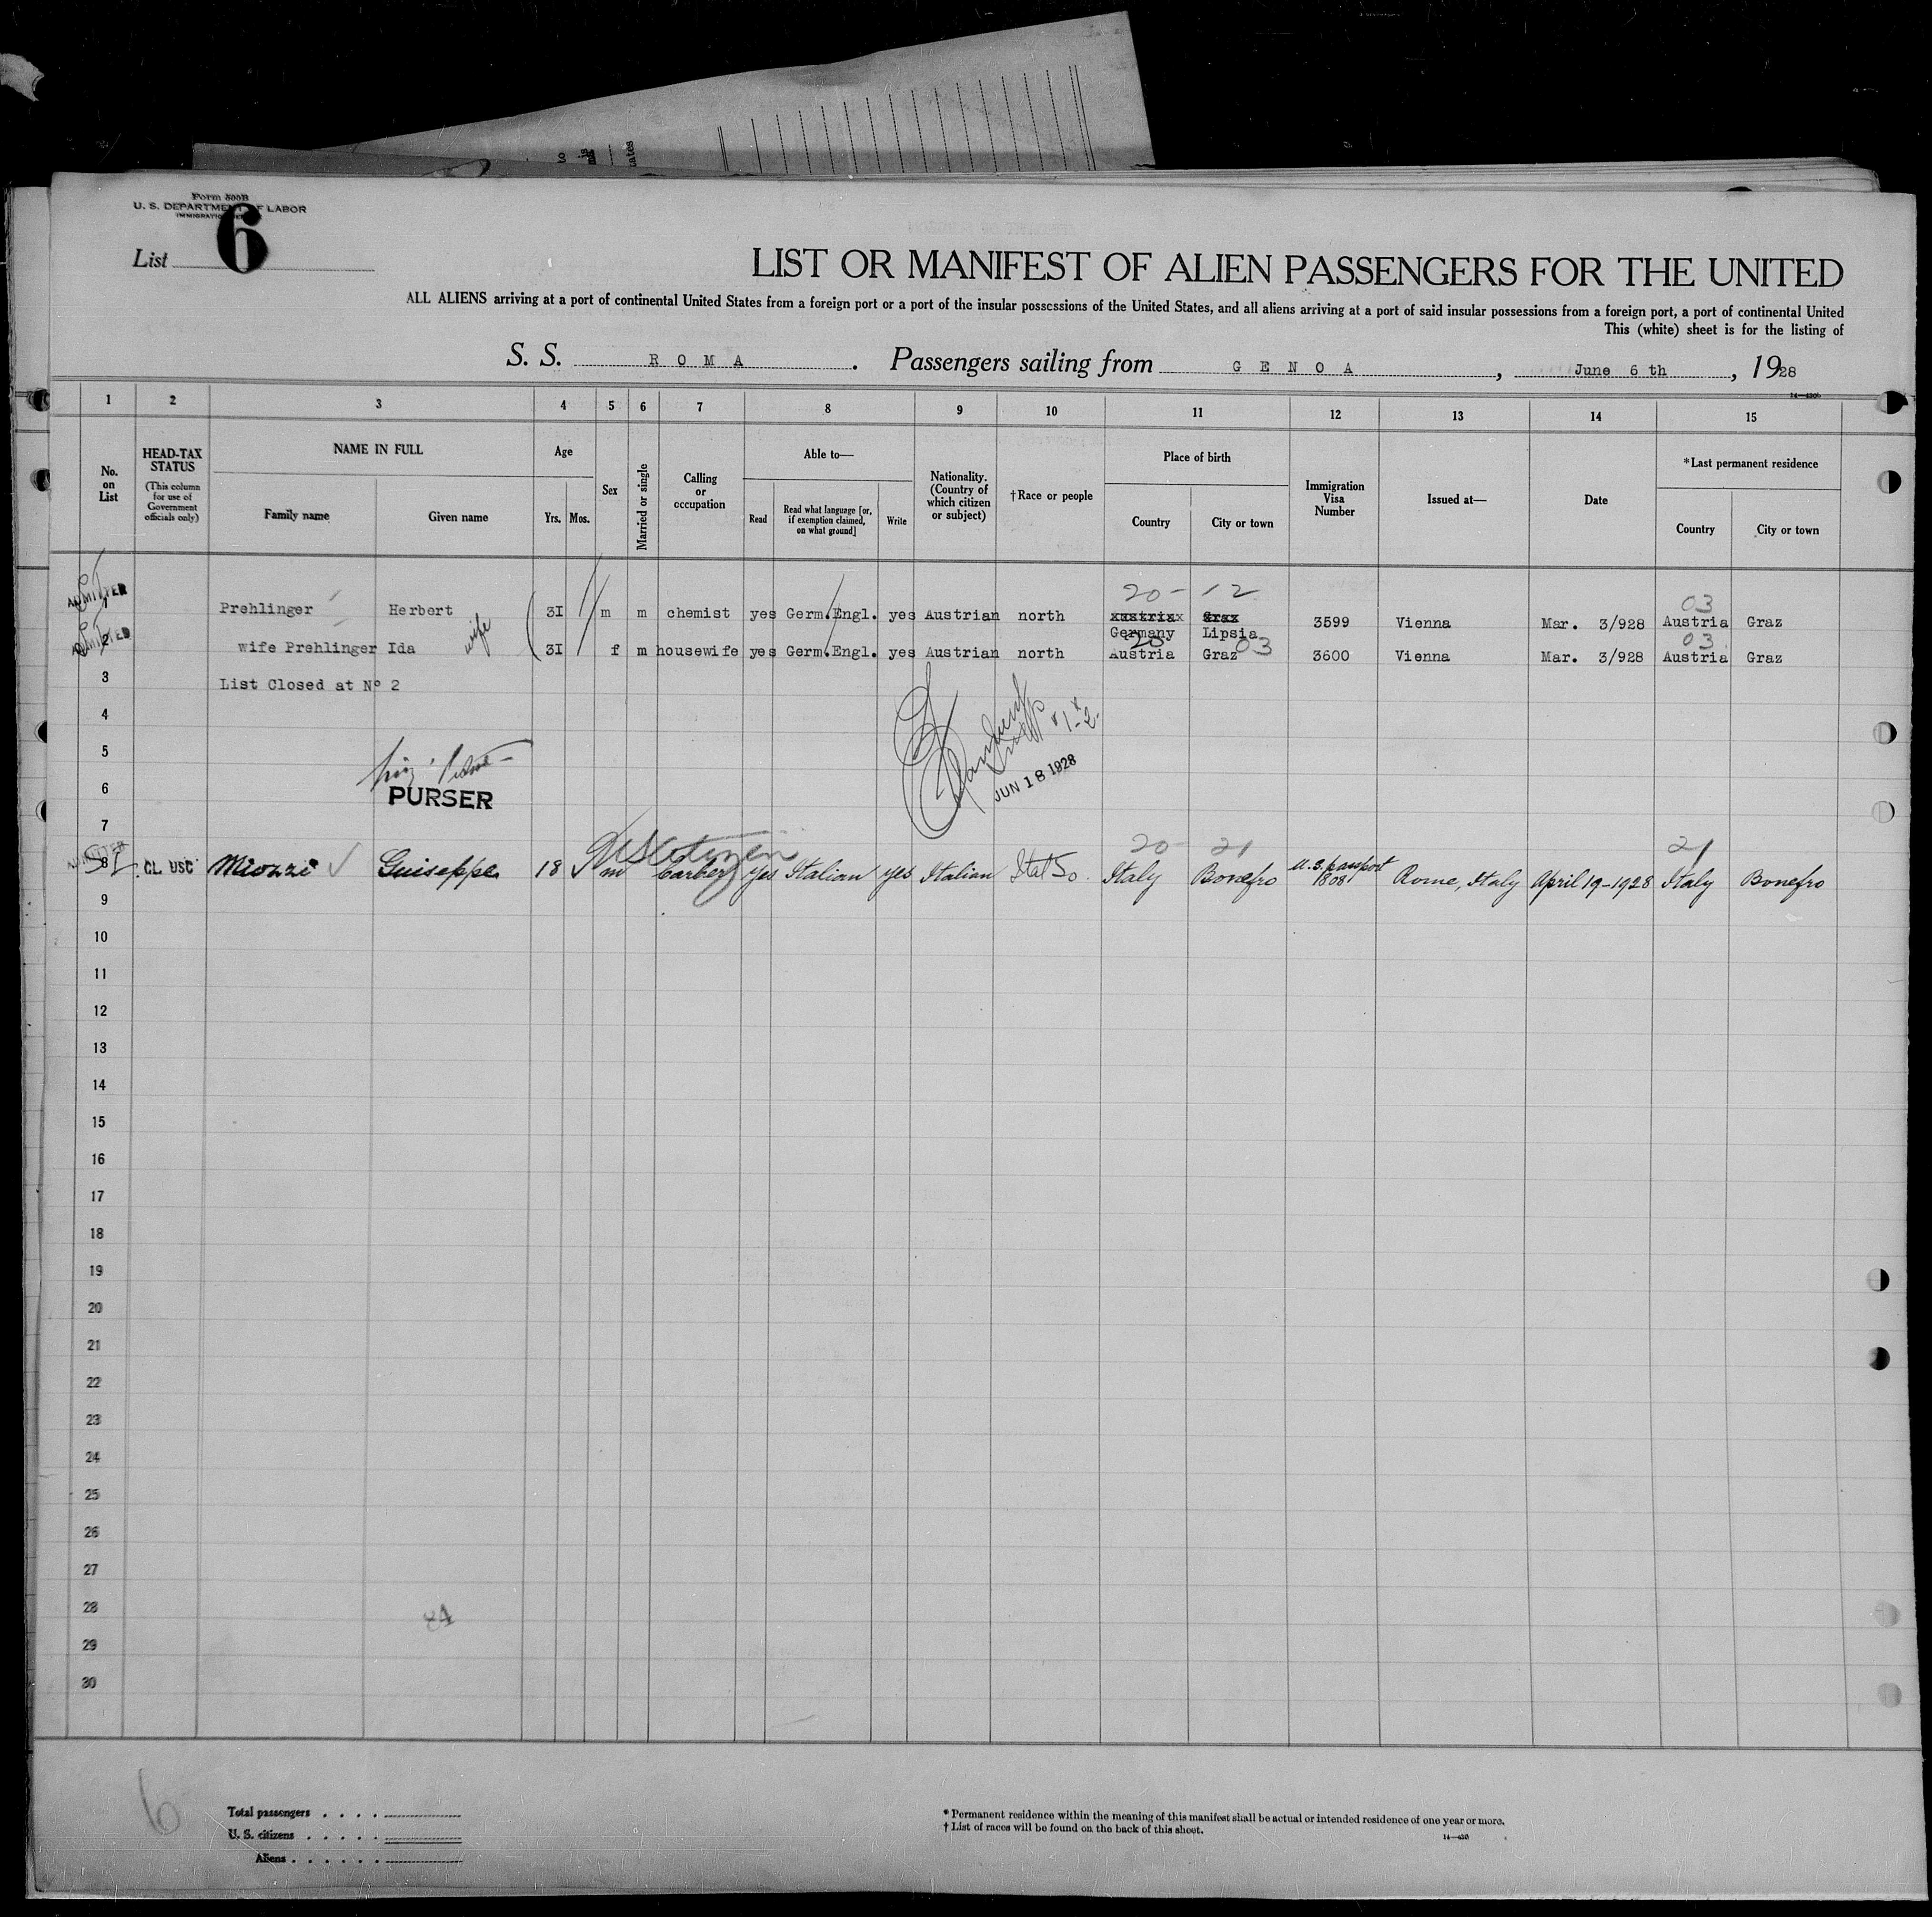 Form 500B
U. S. DEPARTMENT OF LABOR
List 6
LIST OR MANIFEST OF ALIEN PASSENGERS FOR THE UNITED
ALL ALIENS arriving at a port of continental United States from a foreign port or a port of the insular possessions of the United States, and all aliens arriving at a port of said insular possessions from a foreign port, a port of continental United
This (white) sheet is for the listing of
S. S. ROMA. Passengers sailing from GENOA, June 6 th, 1928
1 2 3 4 5 6 7 8 9 10 11 12 13 14 15
No. on List
HEAD-TAX STATUS
(This column for use of Government officials only)
NAME IN FULL
Family name Given name
Age
Yrs. Mos.
Sex
Married or single
Calling or occupation
Able to—
Read Read what language [or, if exemption claimed, on what ground] Write
Nationality. (Country of which citizen or subject)
†Race or people
Place of birth
Country City or town
Immigration Visa Number
Issued at—
Date
*Last permanent residence
Country City or town
20- 12 03
ADMITTED 1 Prehlinger Herbert 3I m m chemist yes Germ.Engl. yes Austrian north Germany Lipsia 3599 Vienna Mar. 3/928 Austria Graz
20 03 03
ADMITTED 2 wife Prehlinger Ida wife 3I f m housewife yes Germ.Engl. yes Austrian north Austria Graz 3600 Vienna Mar. 3/928 Austria Graz
3 List Closed at Nº 2
4
5
6 PURSER
JUN 18 1928
7
US Citizen 20 21 21
ADMITTED 8 CL USC Miozzi Guiseppe 18 m barber yes Italian yes Italian Ital So. Italy Bonefro U.S. passport 1808 Rome, Italy April 19-1928 Italy Bonefro
9
10
11
12
13
14
15
16
17
18
19
20
21
22
23
24
25
26
27
28 84
29
30
6
Total passengers . . . .
U. S. citizens . . . . .
Aliens . . . . . .
* Permanent residence within the meaning of this manifest shall be actual or intended residence of one year or more.
† List of races will be found on the back of this sheet.
14—430